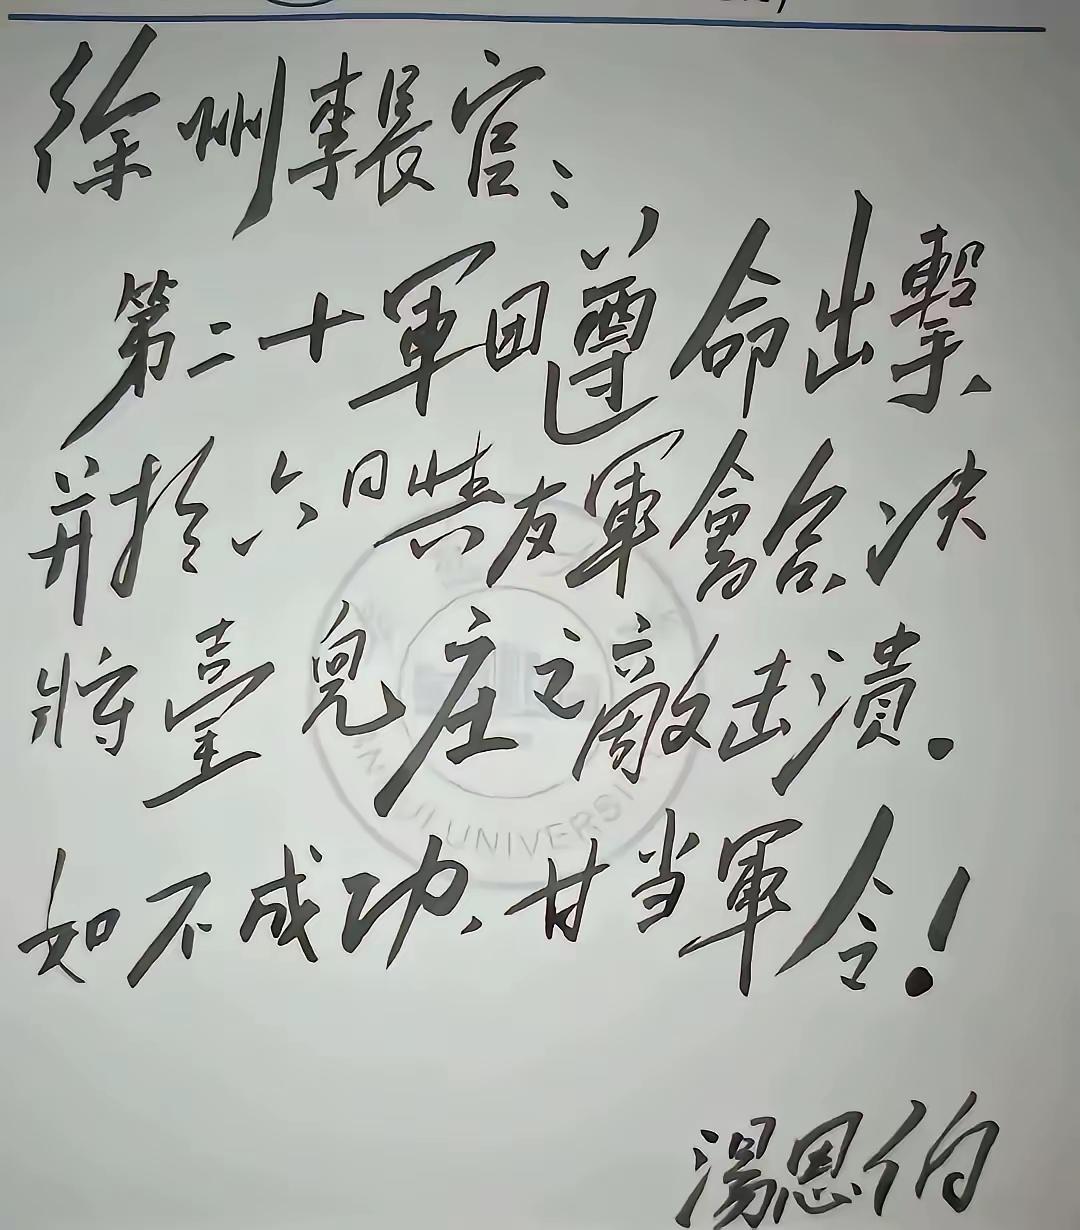 徐州李長官：
第二十軍团遵命出擊、
并扵六日與友軍會合、决
將臺兒庄之敵击潰。
如不成功、甘当軍令！
湯恩伯
UNIVERSI